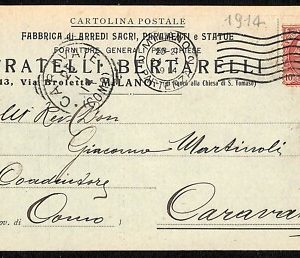 1914
CARTOLINA POSTALE
FABBRICA DI ARREDI SACRI, PARAMENTI E STATUE
FORNITURE GENERALI PER CHIESE
FRATELLI BERTARELLI
13, Via Broletto - MILANO
(di fianco alla Chiesa di S. Tomaso)
M. Rev. Don
Giacomo Martinoli
Coadiutore
ov. di Como
Carava